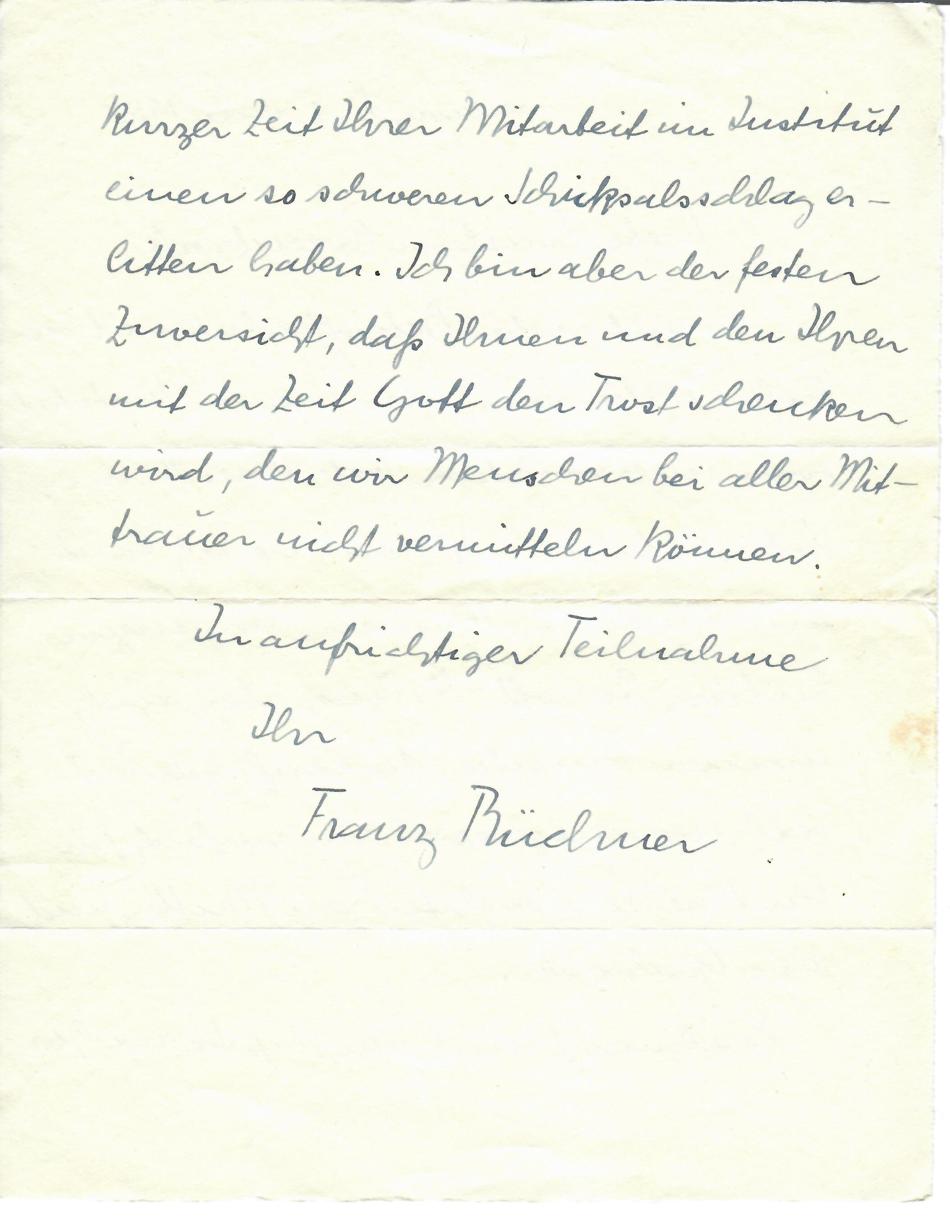 kurzer Zeit Ihrer Mitarbeit im Institut
einen so schweren Schicksalsschlag er-
litten haben. Ich bin aber der festen
Zuversicht, daß Ihnen und den Ihren
mit der Zeit Gott den Trost schenken
wird, den wir Menschen bei aller Mit-
trauer nicht vermitteln können.
In aufrichtiger Teilnahme
Ihr
Franz Büchner